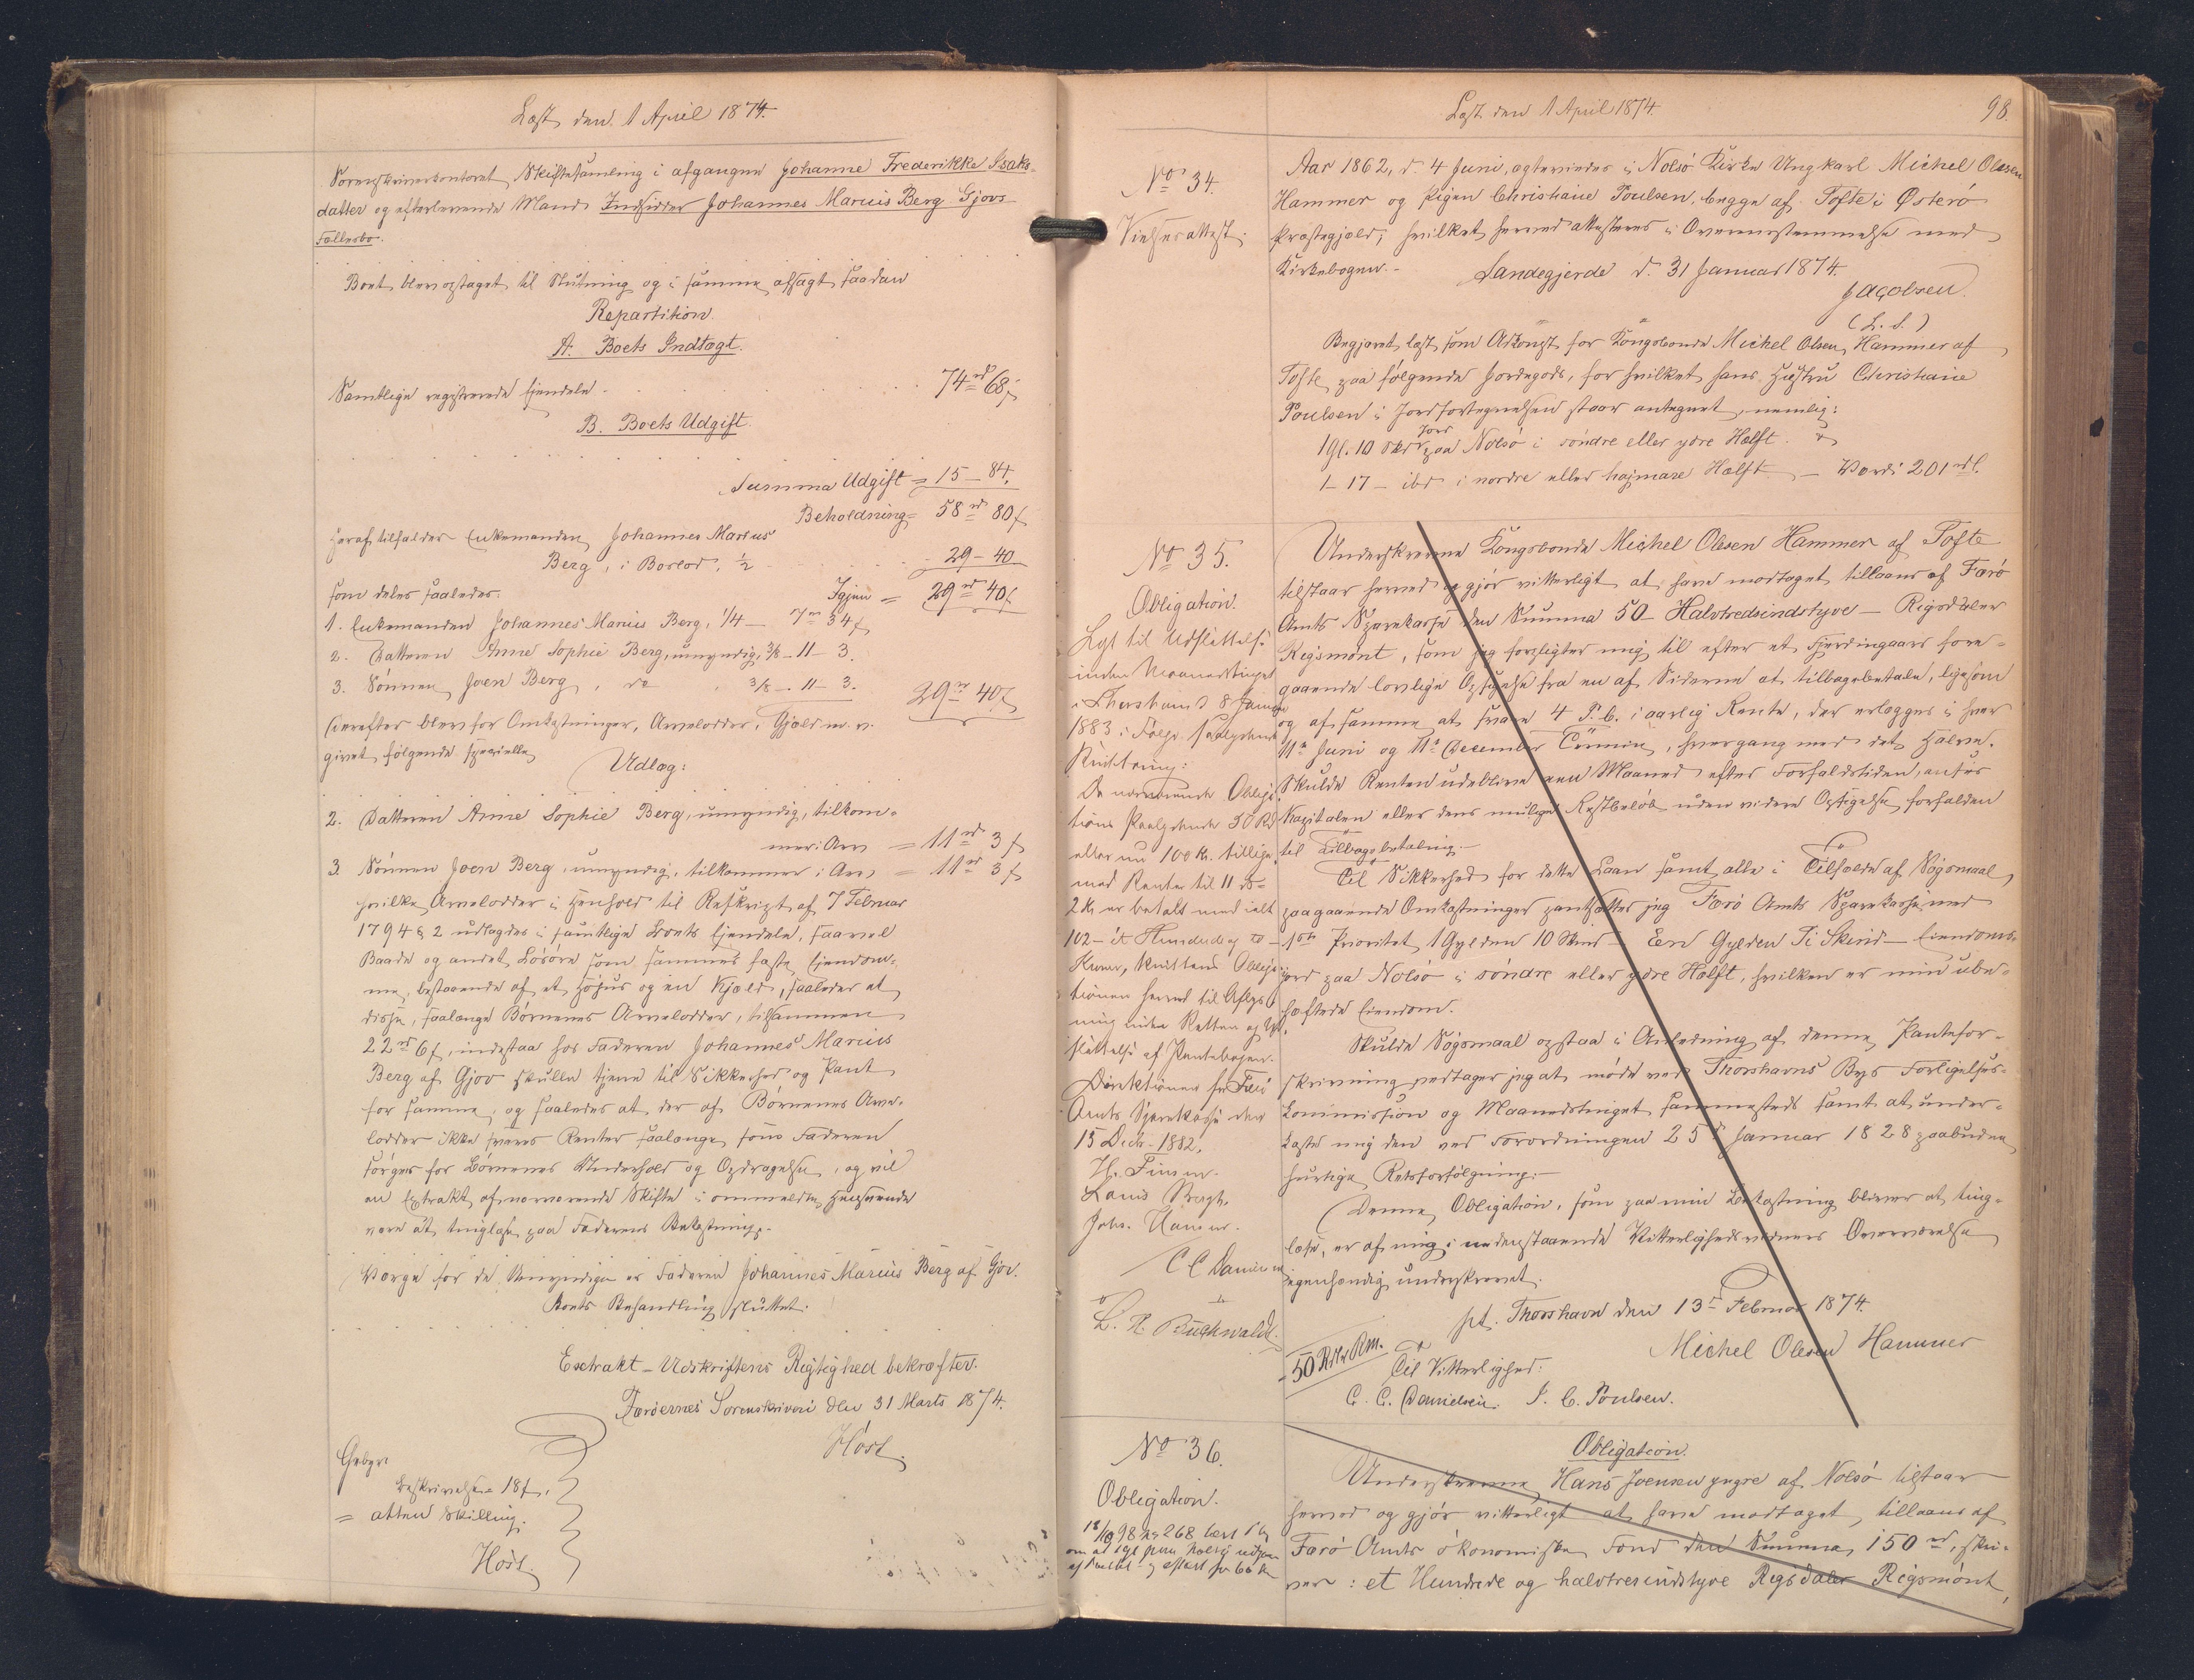 Læst den 1 April 1874.
Sorenskriverkontoret Skiftesamling i afgangne Johanne Frederikke Isaks-
datter og efterlevende Mand Indsidder Johannes Marius Berg Gjovs
Fællesbo.
Boet blev optaget til Slutning og i samme afsagt saadan
Repartition.
A. Boets Indtægt.
Samtlige registrerede Ejendele 74 rd 68 ß
B. Boets Udgift.
Summa Udgift = 15 – 84.
Beholdning = 58 rd 80 ß
Heraf tilfalder Enkemanden Johannes Marius
Berg, i Boslod, 1/2 29 – 40
som deles saaledes. Igjen = 29 rd 40 ß
1. Enkemanden Johannes Marius Berg, 1/4 – 7 rd 34 ß
2. Datteren Anne Sophie Berg, umyndig, 3/8 – 11 – 3.
3. Sønnen Joen Berg, do 3/8 – 11 – 3. 29 rd 40 ß
Derefter blev for Omkostninger, Arvelodder, Gjæld m. v.
givet følgende specielle
Udlæg:
2. Datteren Anne Sophie Berg, umyndig, tilkom-
mer i Arv = 11 rd 3 ß
3. Sønnen Joen Berg, umyndig, tilkommer i Arv = 11 rd 3 ß
hvilke Arvelodder i Henhold til Reskript af 7 Februar
1794 § 2 udlægges i samtlige Boets Ejendele, saavel
Baade og andet Løsøre som sammes faste Ejendom-
me, bestaaende af et Hjhus og en Kjæld, saaledes at
disse, saalænge Børnenes Arvelodder, tilsammen
22 rd 6 ß, indestaa hos Faderen Johannes Marius
Berg af Gjov skulle tjene til Sikkerhed og Pant
for samme, og saaledes at der af Børnenes Arve-
lodder ikke svares Renter saalænge som Faderen
sørger for Børnenes Underhold og Opdragelse, og vil
en Extrakt af nærværende Skifte i ommeldte Henseende
være at tinglæse paa Faderens Bekostning.
Værge for de Umyndige er Faderen Johannes Marius Berg af Gjov.
Boets Behandling sluttet.
Extrakt-Udskriftens Rigtighed bekræfter.
Færøernes Sorenskriveri den 31 Marts 1874.
Høst.
Gebyr
Beskrivelse 18 ß.
= atten Skilling.
Høst
Læst den 1 April 1874.
98.
No 34.
Vielsesattest.
Aar 1862, d. 4 Juni, ægteviedes i Nolsø Kirke Ungkarl Michel Olesen
Hammer og Pigen Christiane Poulsen, begge af Tofte i Østerø
Præstegjæld; hvilket herved attesteres i Overensstemmelse med
Kirkebogen.- Sandegjerde d. 31 Januar 1874.
Jacobsen.
(L. S.)
Begjæret læst som Adkomst for Kongsbonde Michel Olsen Hammer af
Tofte paa følgende Jordegods, for hvilket hans Hustru Christiane
Poulsen i Jordfortegnelsen staar antegnet, nemlig:
1 Gl. 10 Skd Jord paa Nolsø i søndre eller ydre Hælft. &
1 – 17 – ibd i nordre eller hajmare Hælft – Værdi 201 rdl.
No 35.
Obligation.
Lyst til Udslettelse
inden Maanedstinget
i Thorshavn d 8 Januar
1883 i Følge saalydende
Kvittering:
De nærværende Obliga-
tions Paalydende 50 Rd
eller nu 100 Kr. tillige
med Renter til 11 ds
2 Kr er betalt med ialt
102 – et Hundrede og to –
Kroner, kvitteres Obliga-
tionen herved til Aflys-
ning inden Retten og Ud-
slettelse af Pantebogen.
Direktionen for Færø
Amts Sparekasse den
15 Decbr. 1882.
H. Finsen.
Louis Bergh.
C C Danielsen
L. A. Buchwaldt.
Underskrevne Kongsbonde Michel Olesen Hammer af Tofte
tilstaar herved og gjør vitterligt at have modtaget tillaans af Færø
Amts Sparekasse den Summa 50 – Halvtredsindstyve – Rigsdaler
Rigsmønt, som jeg forpligter mig til efter et Fjerdingaars fore-
gaaende lovlige Opsigelse fra en af Siderne at tilbagebetale, ligesom
og af samme at svare 4 P. C. i aarlig Rente, der erlægges i hver
11te Juni og 11te December Termin, hvergang med det Halve.
Skulde Renten udeblive een Maaned efter Forfaldstiden, ansees
Kapitalen eller dens mulige Restbeløb uden videre Opsigelse forfalden
til Tilbagebetaling.-
Til Sikkerhed for dette Laan samt alle i Tilfælde af Søgsmaal
paagaaende Omkostninger pantsætter jeg Færø Amts Sparekasse med
1ste Prioritet 1 Gylden 10 Skind – Een Gylden Ti Skind – Eiendoms-
jord paa Nolsø i søndre eller ydre Hælft, hvilken er min ube-
hæftede Eiendom.
Skulde Søgsmaal opstaa i Anledning af denne Pantefor-
skrivning vedtager jeg at møde ved Thorshavns Byes Forligelses-
kommission og Maanedstinget sammesteds samt at under-
kaste mig den ved Forordningen 25de Januar 1828 paabudne
hurtige Retsforfølgning.-
Denne Obligation, som paa min Bekostning bliver at ting-
læse, er af mig i undenstaaende Vitterlighedsvidners Overværelse
egenhændig underskrevet.
pt. Thorshavn den 13de Februar 1874.
Michel Olesen Hammer
50 Rdlr Rm.
Til Vitterlighed.
C. C. Danielsen. J. C. Poulsen.
No 36.
Obligation.
Obligation.
Underskrevne Hans Joensen yngre af Nolsø tilstaar
herved og gjør vitterligt at have modtaget tillaans af
Færø Amts økonomiske Fond den Summa 150 rd, skri-
ver: et Hundrede og halvtresindstyve Rigsdaler Rigsmønt,